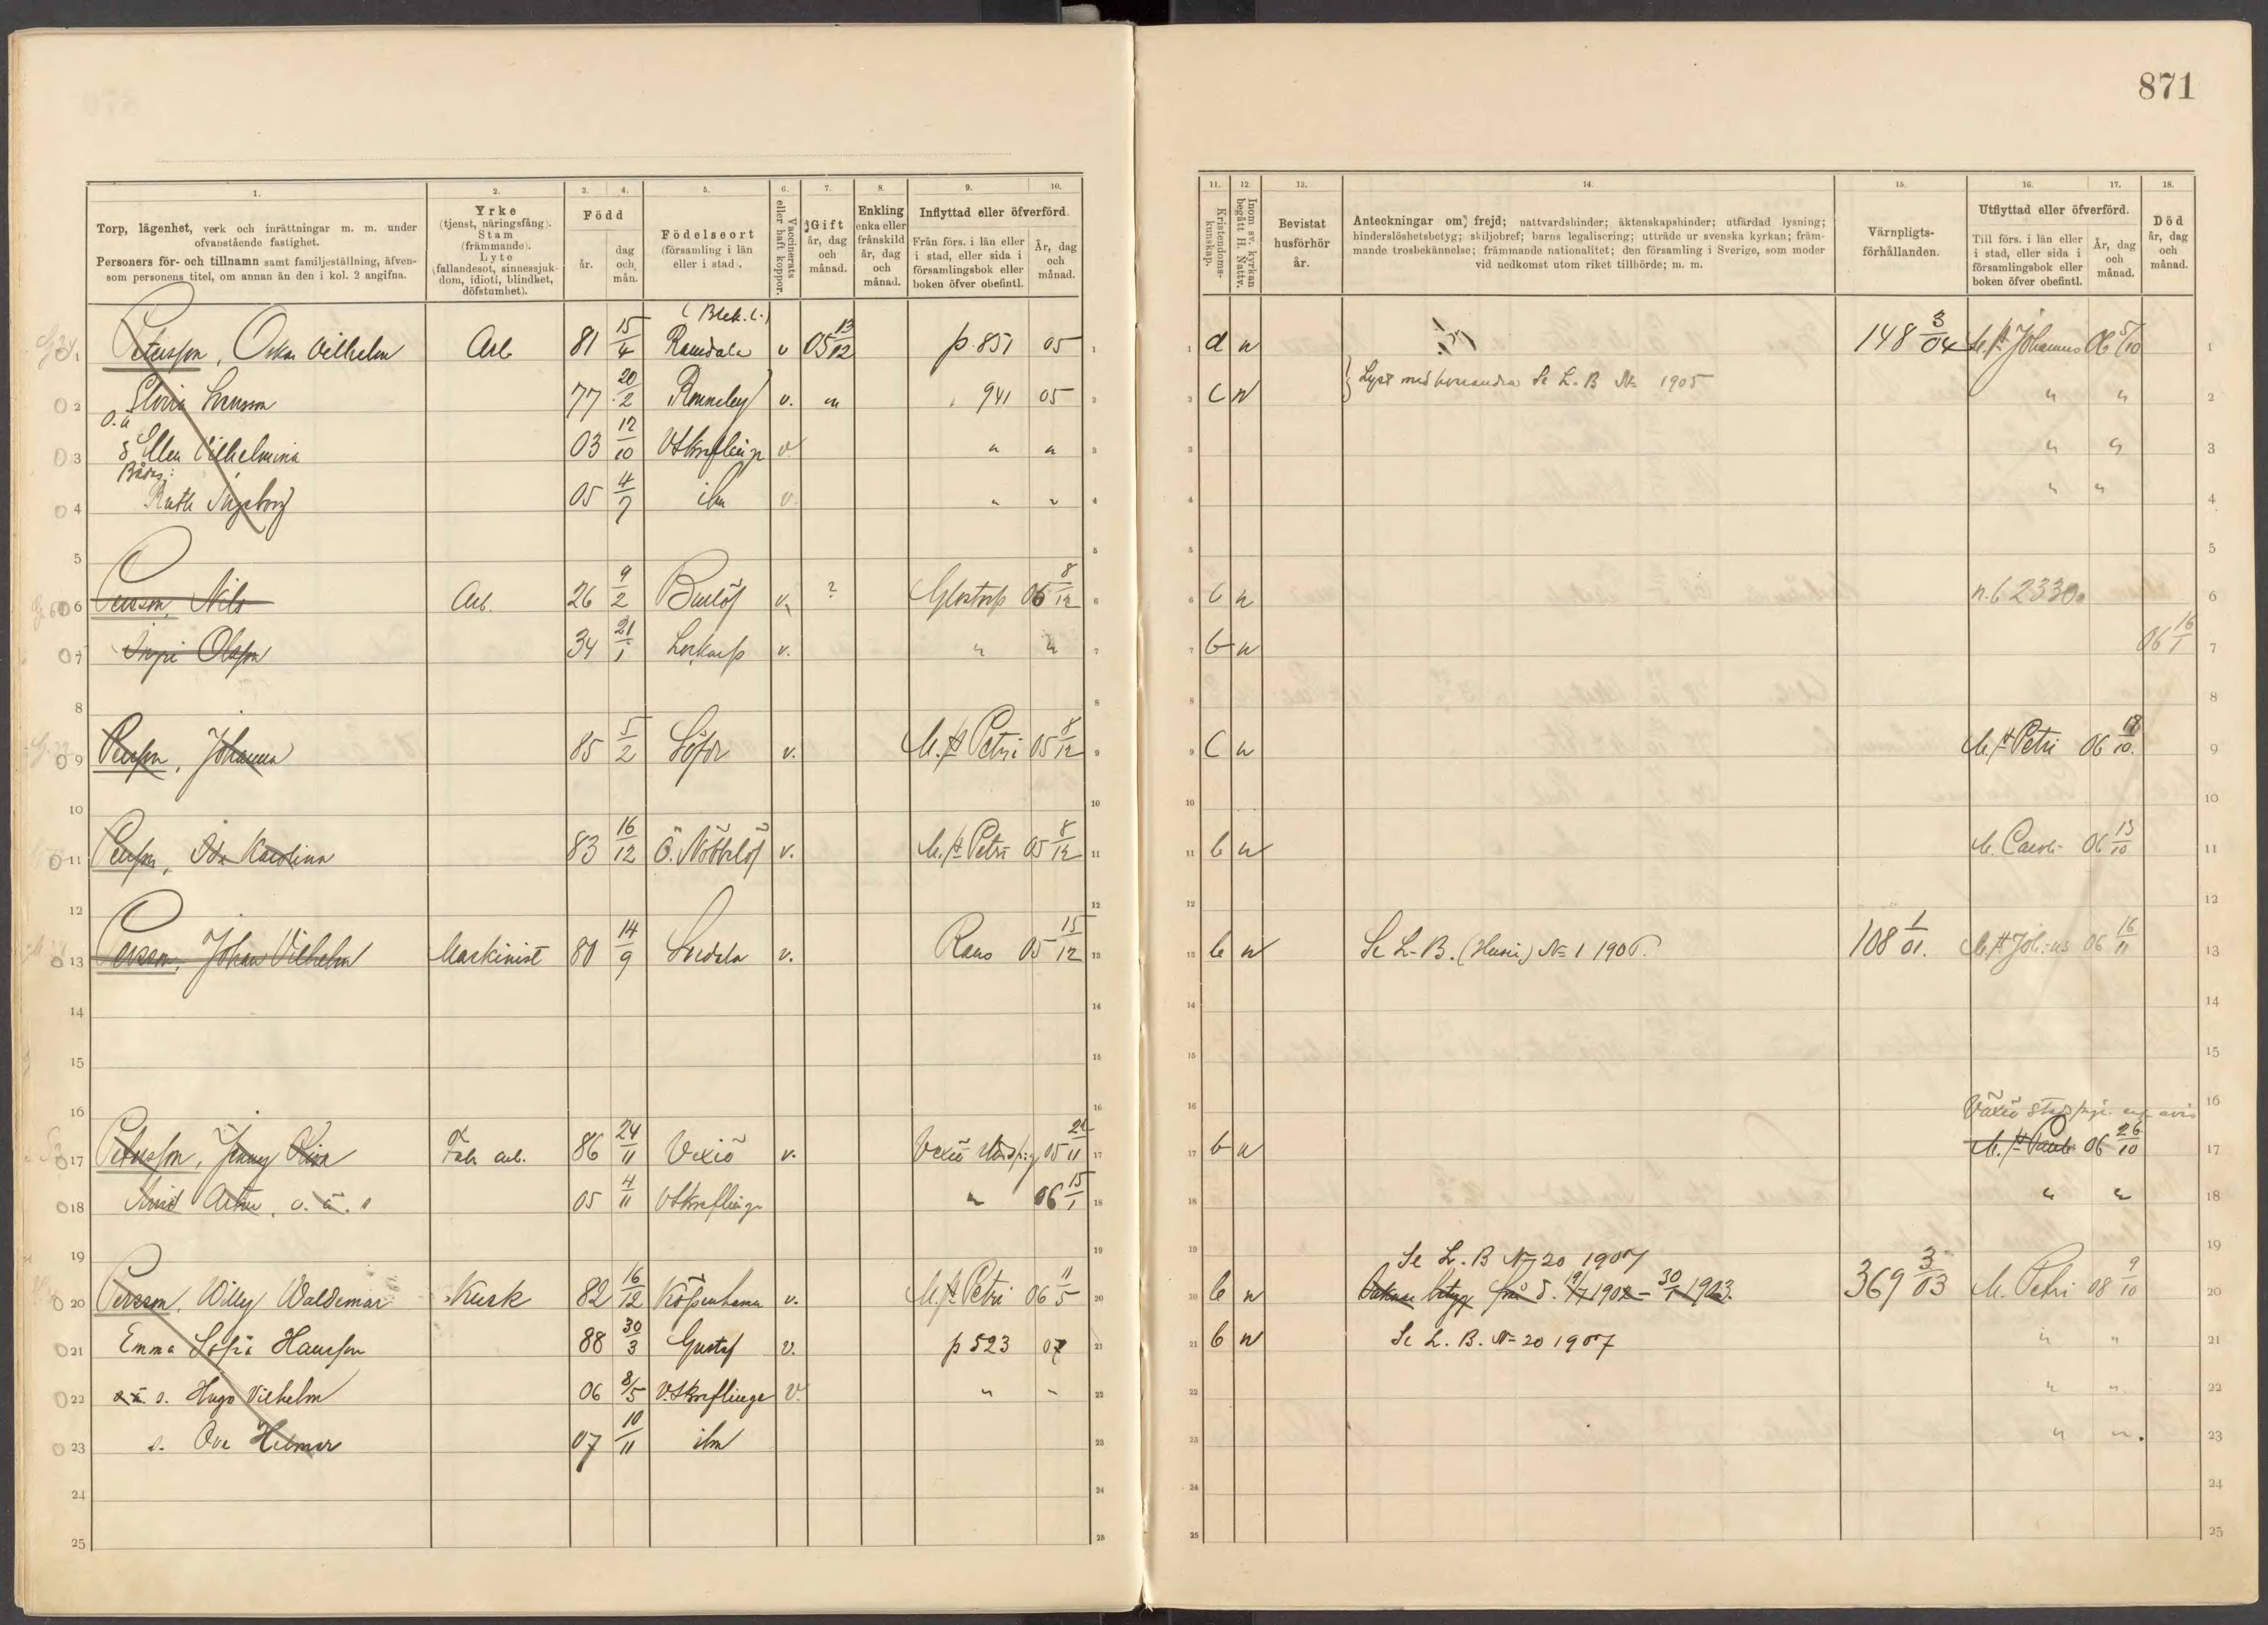 871
1. 2. 3. 4. 5. 6. 7. 8. 9. 10.
Torp, lägenhet, verk och inrättningar m. m. under
ofvanstående fastighet.
Personers för- och tillnamn samt familjeställning, äfven-
som personens titel, om annan än den i kol. 2 angifna.
Yrke
(tjenst, näringsfång).
Stam
(främmande).
Lyte
(fallandesot, sinnessjuk-
dom, idioti, blindhet,
döfstumhet).
Född
år.
dag
och
mån.
Födelseort
(församling i län
eller i stad).
Vaccinerats
eller haft koppor.
Gift
år, dag
och
månad.
Enkling
enka eller
frånskild
år, dag
och
månad.
Inflyttad eller öfverförd.
Från förs. i län eller
i stad, eller sida i
församlingsbok eller
boken öfver obefintl.
År, dag
och
månad.
11. 12 13. 14. 15. 16. 17. 18.
Kristendoms-
kunskap.
Inom sv. kyrkan
begått H. Nattv.
Bevistat
husförhör
år.
Anteckningar om frejd; nattvardshinder; äktenskapshinder; utfärdad lysning;
hinderslöshetsbetyg; skiljobref; barns legalisering; utträde ur svenska kyrkan; främ-
mande trosbekännelse; främmande nationalitet; den församling i Sverige, som moder
vid nedkomst utom riket tillhörde; m. m.
Värnpligts-
förhållanden.
Utflyttad eller öfverförd.
Till förs. i län eller
i stad, eller sida i
församlingsbok eller
boken öfver obefintl.
År, dag
och
månad.
Död
år, dag
och
månad.
(Blek. l.)
1 Petersson, Oskar Vilhelm Arb 81 15/4 Ramdala v 05 13/12 p. 851 05 d n 148 3/04 M. St Johannes 06 5/10
2 Svensson 77 20/2 Ronneby v. " " 941 05 c n Lyst med hvarandra Se L. B No 1905 " "
o. ä
3 Ellen Vilhelmina 03 12/10 V Skreflinge v " " " "
4 Ruth Ingeborg 05 4/7 ibm v. " " " "
5
6 Persson, Nils Arb. 26 9/2 Burlöf v. ? Glostorp 06 8/12 b n n. b 2330
7 Olsson 34 21/1 Lockarp v. " " b n 06 16/1
8
9 Persson, Johanna 85 5/2 v. M. St Petri 05 8/12 c n M. St Petri 06 18/10.
10
11 Persson, Ida Karolina 83 16/12 Ö. Nöbbelöf v. M. St Petri 05 8/12 b n M. Caroli 06 13/10
12
13 Persson, Johan Vilhelm Maskinist 80 14/9 Svedala v. Raus 05 15/12 b n Se L. B. (Husie) No 1 1906. 108 1/01. M. St Joh:us 06 16/11
14
15
16 Växiö
17 Petersson, Jenny Fabr. arb. 86 24/11 Vexiö v. Vexiö 05 21/11 b n M. St Pauli 06 26/10
18 o. ä. s 05 4/11 V Skreflinge " 06 15/1 " "
19 Se L. B No 20 1907
20 Persson, Willy Waldemar Kusk 82 16/12 Köpenhamn v. M. St Petri 06 11/5 b n betyg från d. 19/7 1902 - 30/1 1903. 369 3/03 M. Petri 08 9/10
21 Emma Sofia Hansson 88 30/3 Gustaf v. p 523 07 b n Se L. B. No 20 1907 " "
22 o. ä. s. Hugo Vilhelm 06 8/5 V. Skreflinge v. " " " "
23 s. Ove Helmer 07 10/11 ibm " "
24
25